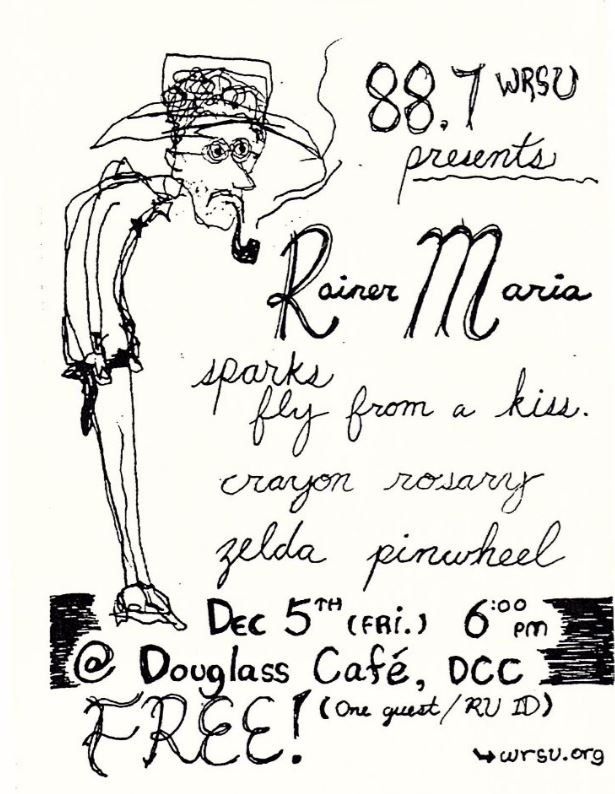 88.7 WRSU
presents
Rainer Maria
sparks
fly from a kiss.
crayon rosary
zelda pinwheel
DEC 5TH (FRI.) 6:00 PM
@ Douglass Café, DCC
FREE! (One guest/RU ID)
↳ wrsu.org